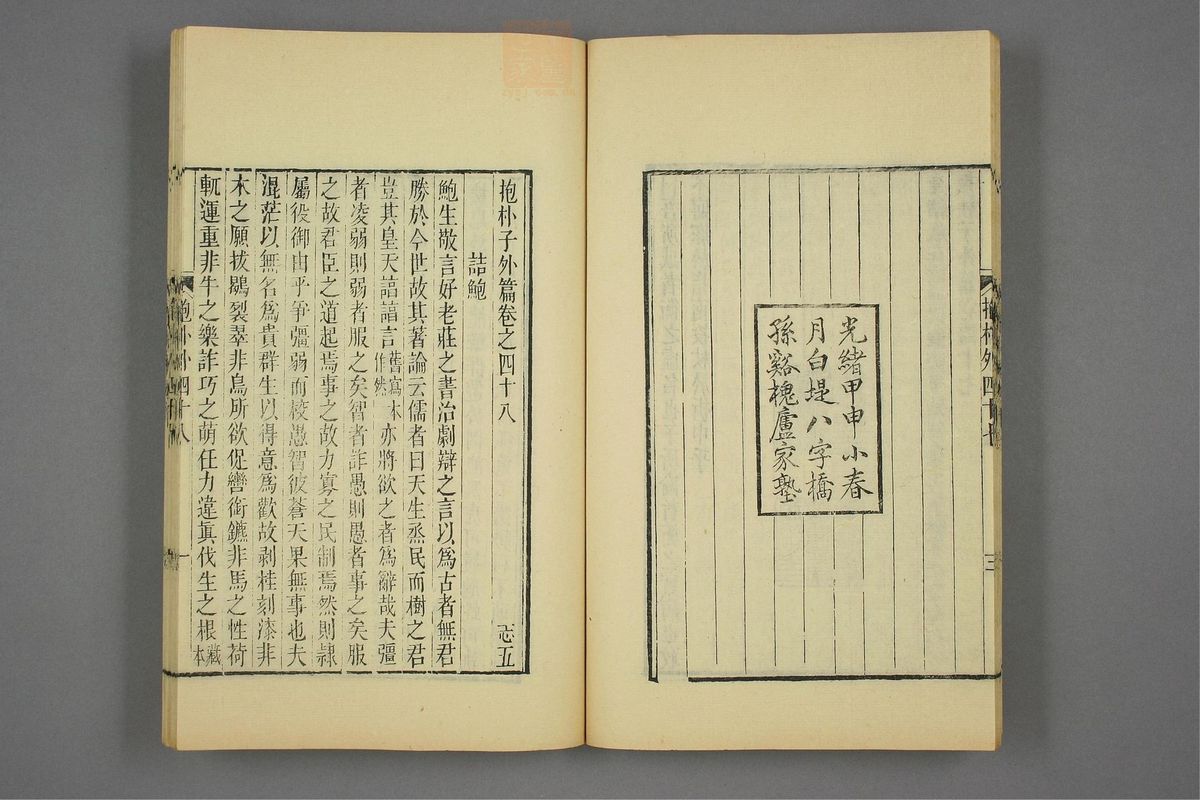 抱朴外四十七
三
光緒甲申小春
月白堤八字橋
孫谿槐廬家塾
抱朴子外篇卷之四十八 志五
詰鮑
鮑生敬言好老莊之書治劇辯之言以爲古者無君
勝於今世故其著論云儒者曰天生烝民而樹之君
豈其皇天諄諄言舊寫本作然亦將欲之者爲辭哉夫彊
者凌弱則弱者服之矣智者詐愚則愚者事之矣服
之故君臣之道起焉事之故力寡之民制焉然則隸
屬役御由乎爭彊弱而校愚智彼蒼天果無事也夫
混茫以無名爲貴群生以得意爲歡故剥桂刻漆非
木之願拔鶡裂翠非鳥所欲促轡銜鑣非馬之性荷
軏運重非牛之樂詐巧之萌任力違真伐生之根藏本
抱朴外四十八
一